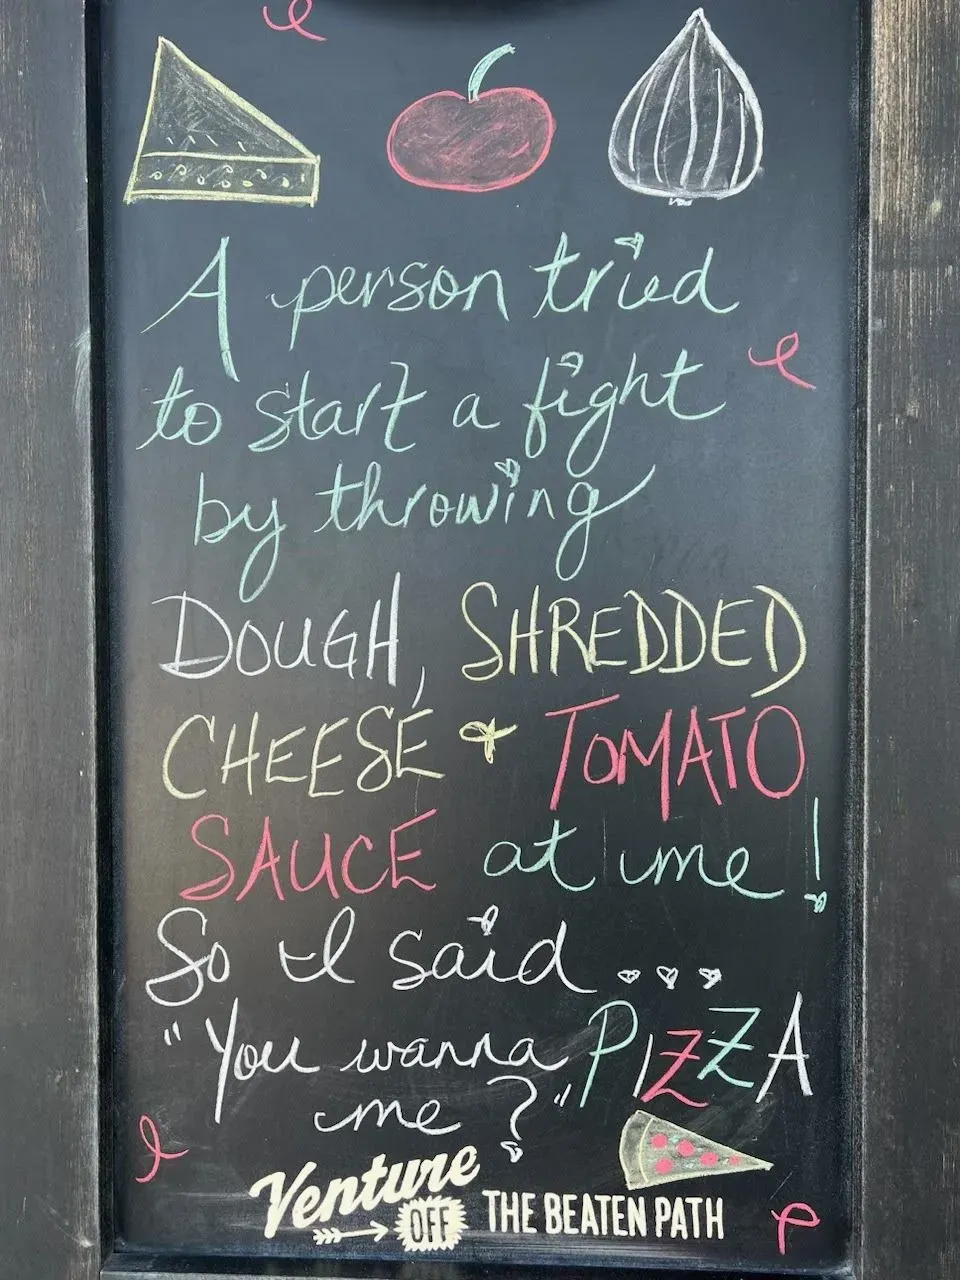 A person tried
to start a fight
by throwing
DOUGH, SHREDDED
CHEESE & TOMATO
SAUCE at me!
So I said...
"You wanna PIZZA
me?"
Venture
OFF THE BEATEN PATH